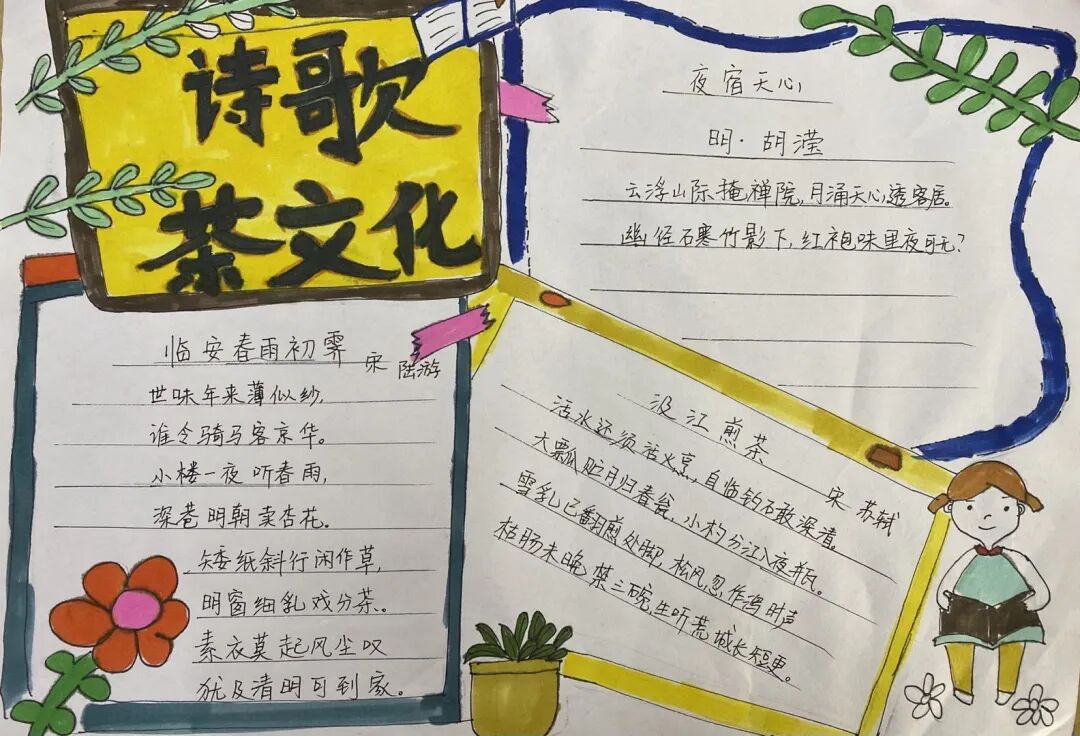 诗歌
茶文化
临安春雨初霁
宋 陆游
世味年来薄似纱,
谁令骑马客京华。
小楼一夜听春雨,
深巷明朝卖杏花。
矮纸斜行闲作草,
明窗细乳戏分茶。
素衣莫起风尘叹
犹及清明可到家。
夜宿天心
明·胡滢
云浮山际掩禅院,月涌天心透客居。
幽径石寒竹影下,红袍味里夜可无?
汲江煎茶
宋 苏轼
活水还须活火烹,自临钓石敢深清。
大瓢贮月归春瓮,小杓分江入夜瓶。
雪乳已翻煎处脚,松风忽作泻时声
枯肠未晚禁三碗,生听荒城长短更。